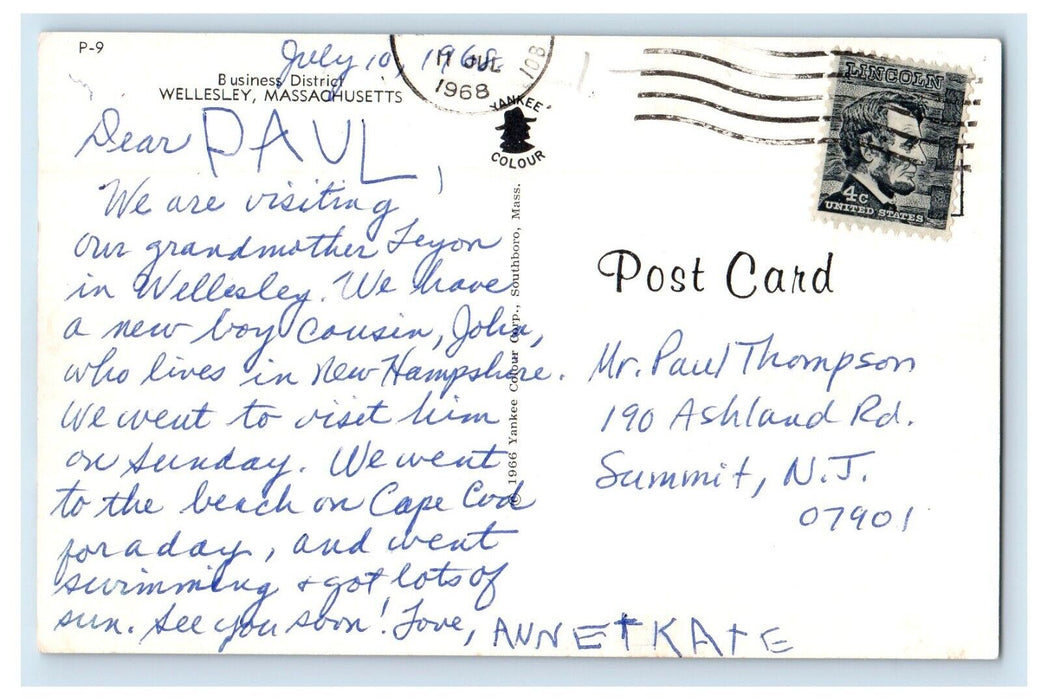 P-9
Business District
WELLESLEY, MASSACHUSETTS
July 10, 1968
11 JUL
1968
10B
YANKEE
COLOUR
LINCOLN
4c
UNITED STATES
© 1966 Yankee Colour Corp., Southboro, Mass.
Post Card
Dear PAUL,
We are visiting
our grandmother Leyon
in Wellesley. We have
a new boy cousin, John,
who lives in New Hampshire.
We went to visit him
on Sunday. We went
to the beach on Cape Cod
for a day, and went
swimming + got lots of
sun. See you soon! Love, ANNE + KATE
Mr. Paul Thompson
190 Ashland Rd.
Summit, N.J.
07901